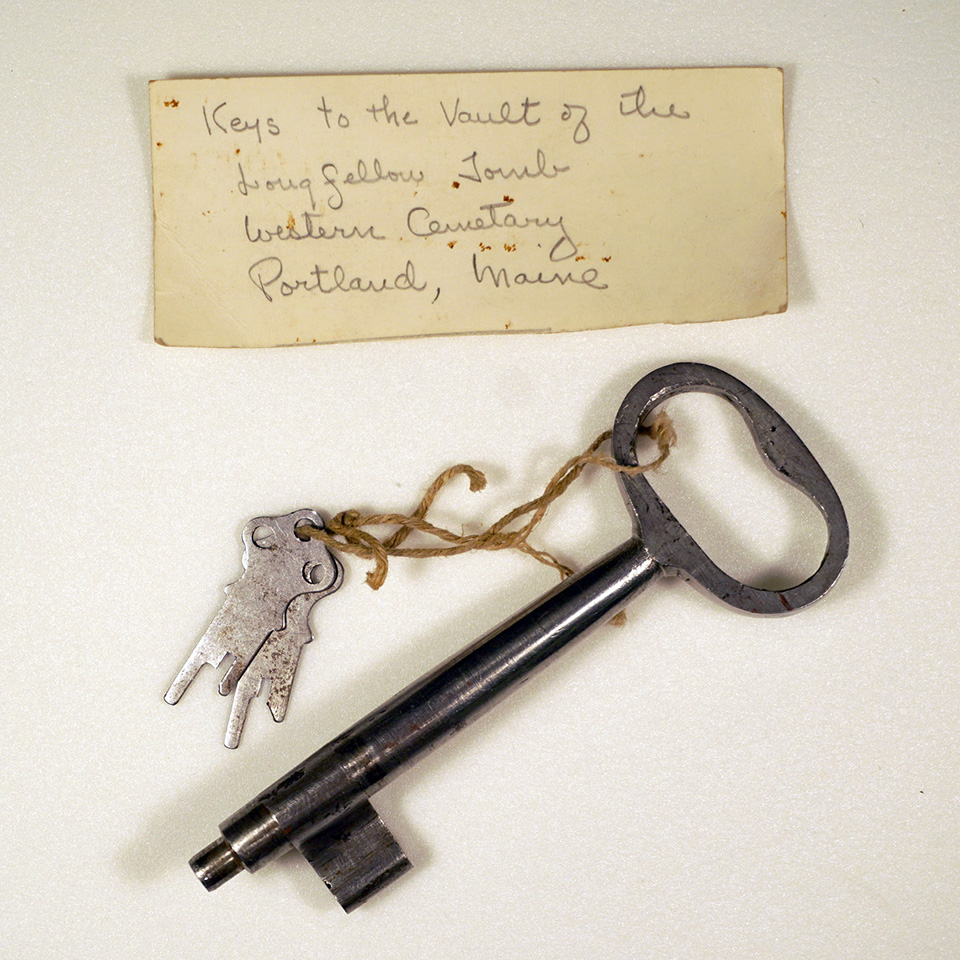 Keys to the Vault of the
Longfellow Tomb
Western Cemetary
Portland, Maine